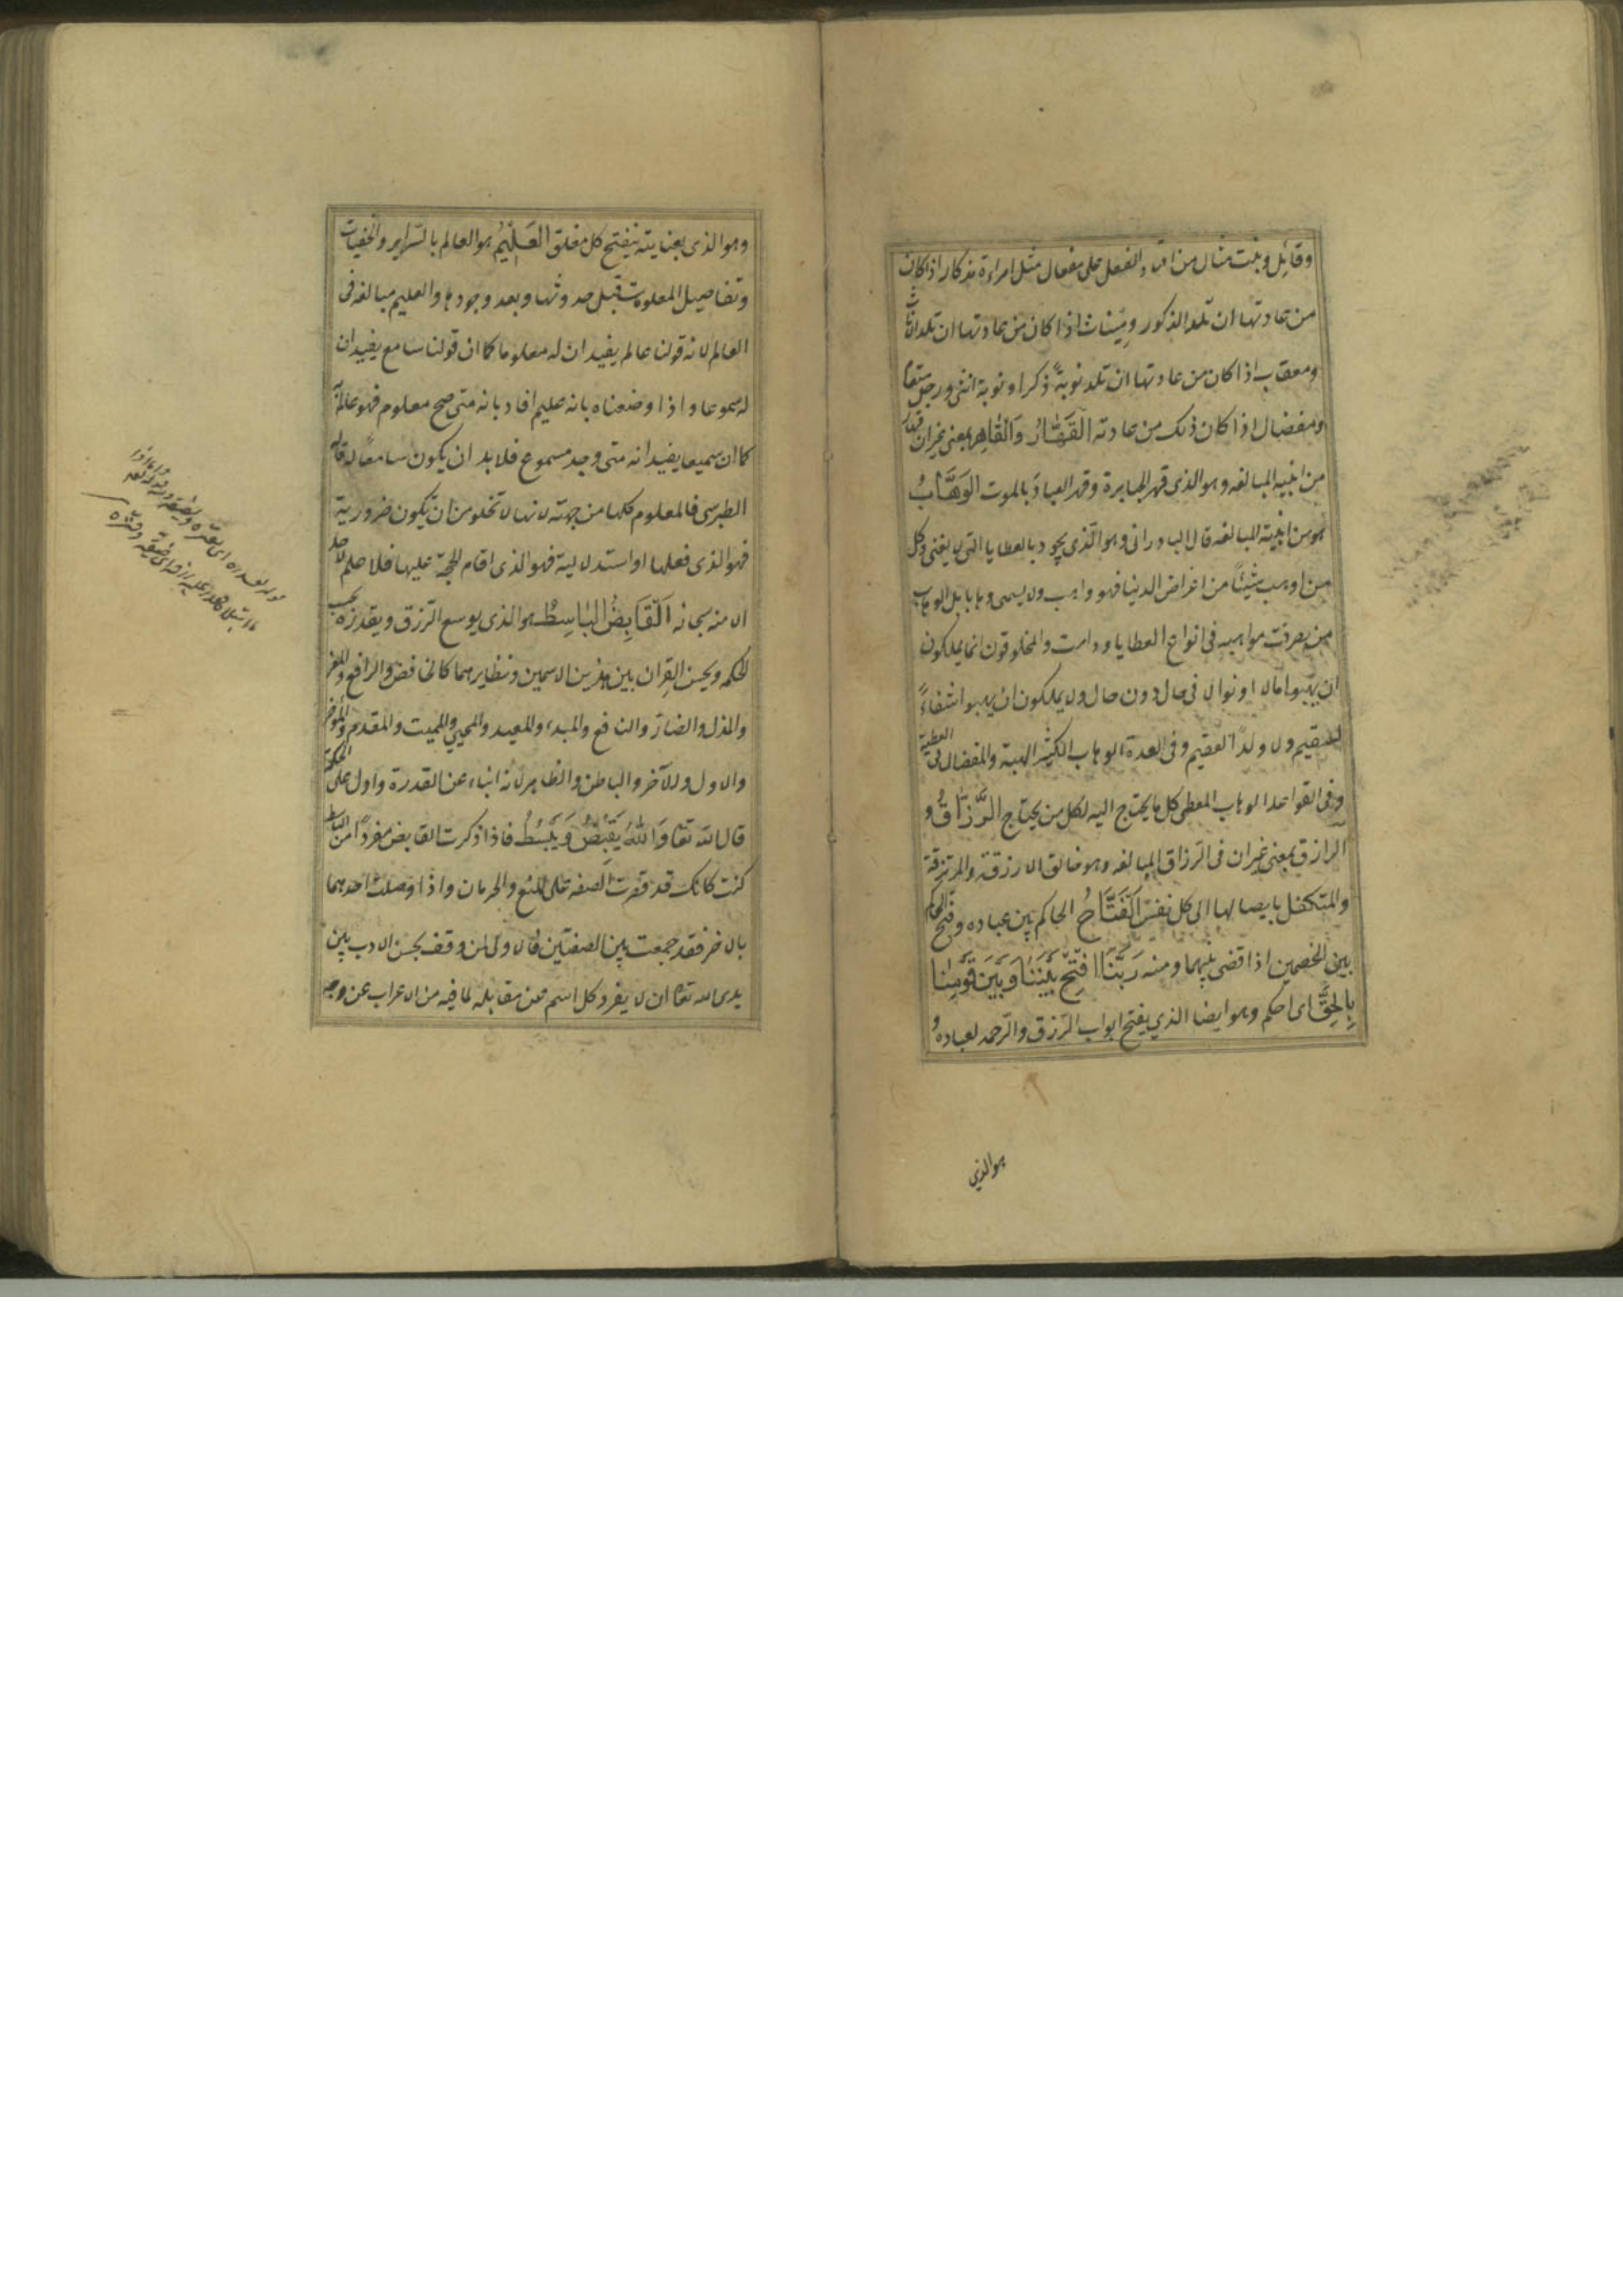 وقائل وبنت مثال من اعتاد الفعل على مفعال مثل امراءة مذكار اذا كان
من عادتها ان تلد الذكور ومئناث اذا كان من عادتها ان تلد الاناث
ومعقاب اذا كان من عادتها ان تلد نوبةً ذكرا ونوبة انثى ورجل منعام
ومفضال اذا كان ذلك من عادته القَهَّارُ وَالْقَاهِر بمعنى غير ان قهار
من ابنيه المبالغه وهو الذى قهر الجبابرة وقهر العبادَ بالموت الوَهَّابُ
هو من ابنية المبالغه قال البادرانى وهو الّذى يجود بالعطايا التى لا يفنى وكل
من اوهب شيئاً من اغراض الدينا فهو واهب ولا يسمى وهابا بل الوهاب
من تصرفت مواهبه فى انواع العطايا ودامت والمخلوقون انما يملكون
ان يهبوا مالا او نوالا فى حال دون حال ولا يملكون ان يهبوا اشفاءً
لسقيم ولا ولدًا لعقيم وفى العدة الوهاب الكثير الهبة والمفضال فى العطية
وفى القواعد الوهاب المعطى كل ما يحتاج اليه لكل من يحتاج الرَّزَّاقُ و
الرازق بمعنى غير ان فى الرّزاق المبالغه وهو خالق الارزقة والمرتزقة
والمتكفل بايصالها الى كل نفس اَلْفَتَّاحُ الحاكم بين عباده وفتح الحاكم
بين الخصمين اذا قضى بينهما ومنه رَبَّنَا افْتَحْ بَيْنَنَا وَبَيْنَ قَوْمِنَا
بِالْحَقِّ اى احكم وهو ايضا الذي يفتح ابواب الرّزق والرّحمه لعباده و
هو الذي
وهو الذى بعنايته ينفتح كل مغلق العَلِيْمُ هو العالم بالسّراير والخفيات
وتفاصيل المعلومات قبل حدوثها وبعد وجودها والعليم مبالغه فى
العالم لانه قولنا عالم يفيد ان له معلوما كما ان قولنا سامع يفيد ان
له مسموعا واذا وضعناه بانه عليم افاد بانه متى صح معلوم فهو عالم به
كما ان سميعا يفيد انه متى وجد مسموع فلابد ان يكون سامعًا له قاله
الطبرسى فالمعلوم كلها من جهته لانها لا تخلو من ان تكون ضرورية
فهو الذى فعلها او استدلالية فهو الذى اقام الحجة عليها فلا علم لاحد
الا منه سبحانه اَلْقَابِضُ الْبَاسِطُ هو الذى يوسع الرّزق ويقدره بحسب
الحكمه ويحسن القِران بين هذين الاسمين ونظايرهما كالخافض والرافع والمعز
والمذل والضارّ والنافع والمبدء والمعيد والمحيي والمميت والمقدم والمؤخر
والاول والآخر والباطن والظاهر لانه انباء عن القدرة وادل على الحكمة
قال الله تعا وَاللهُ يَقْبِضُ وَيَبْسُطُ فاذا ذكرت القابض مفردًا من الباسط
كنت كانك قد قصرت الصفه على المنع والحرمان واذا وصلت احدهما
بالاخر فقد جمعت بين الصفتين فالاولى لمن وقف بحسن الادب بين
يدى الله تعا ان لا يفرد كل اسم عن مقابله لما فيه من الاعراب عن وجه